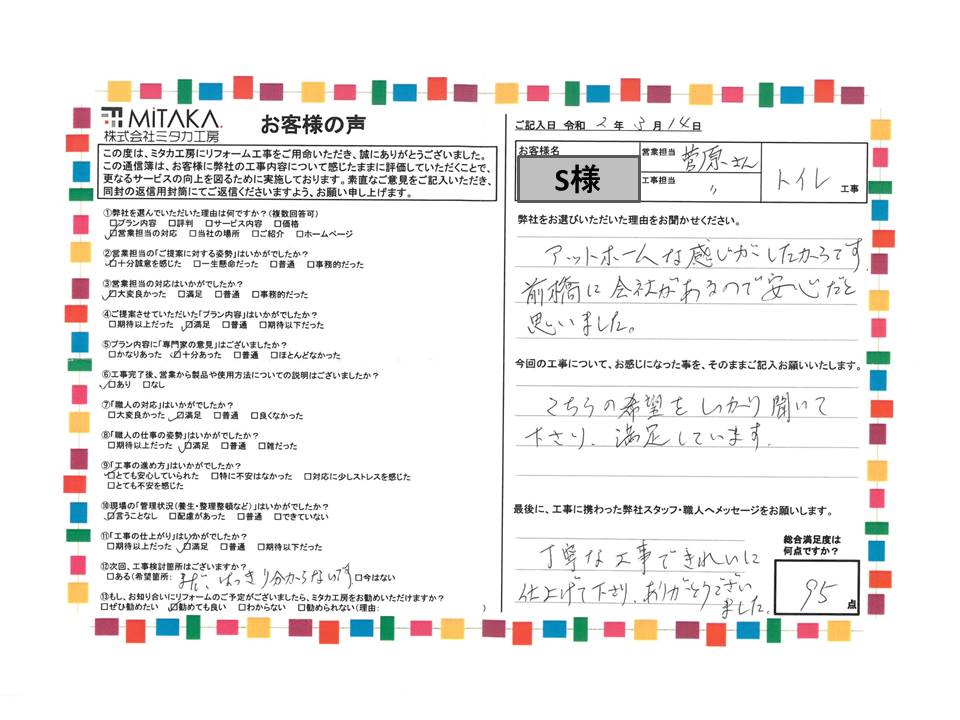 MiTAKA.
株式会社ミタカ工房
お客様の声
この度は、ミタカ工房にリフォーム工事をご用命いただき、誠にありがとうございました。
この通信簿は、お客様に弊社の工事内容について感じたままに評価していただくことで、
更なるサービスの向上を図るために実施しております。素直なご意見をご記入いただき、
同封の返信用封筒にてご返信くださいますよう、お願い申し上げます。
①弊社を選んでいただいた理由は何ですか？(複数回答可)
□プラン内容 □評判 □サービス内容 □価格
☑営業担当の対応 □当社の場所 □ご紹介 □ホームページ
②営業担当の「ご提案に対する姿勢」はいかがでしたか？
☑十分誠意を感じた □一生懸命だった □普通 □事務的だった
③営業担当の対応はいかがでしたか？
☑大変良かった □満足 □普通 □事務的だった
④ご提案させていただいた「プラン内容」はいかがでしたか？
□期待以上だった ☑満足 □普通 □期待以下だった
⑤プラン内容に「専門家の意見」はございましたか？
□かなりあった ☑十分あった □普通 □ほとんどなかった
⑥工事完了後、営業から製品や使用方法についての説明はございましたか？
☑あり □なし
⑦「職人の対応」はいかがでしたか？
□大変良かった ☑満足 □普通 □良くなかった
⑧「職人の仕事の姿勢」はいかがでしたか？
□期待以上だった ☑満足 □普通 □雑だった
⑨「工事の進め方」はいかがでしたか？
☑とても安心していられた □特に不安はなかった □対応に少しストレスを感じた
□とても不安を感じた
⑩現場の「管理状況(養生・整理整頓など)」はいかがでしたか？
☑言うことなし □配慮があった □普通 □できていない
⑪「工事の仕上がり」はいかがでしたか？
□期待以上だった ☑満足 □普通 □期待以下だった
⑫次回、工事検討箇所はございますか？
□ある(希望箇所: まだ、はっきり分からないです □今はない
⑬もし、お知り合いにリフォームのご予定がございましたら、ミタカ工房をお勧めいただけますか？
□ぜひ勧めたい ☑勧めても良い □わからない □勧められない(理由: )
ご記入日 令和 2 年 3 月 14 日
お客様名
S様
営業担当 菅原さん
工事担当 〃
トイレ 工事
弊社をお選びいただいた理由をお聞かせください。
アットホームな感じがしたからです。
前橋に会社があるので安心だと
思いました。
今回の工事について、お感じになった事を、そのままご記入お願いいたします。
こちらの希望をしっかり聞いて
下さり、満足しています。
最後に、工事に携わった弊社スタッフ・職人へメッセージをお願いします。
丁寧な工事できれいに
仕上げて下さり、ありがとうござい
ました。
総合満足度は
何点ですか？
95 点